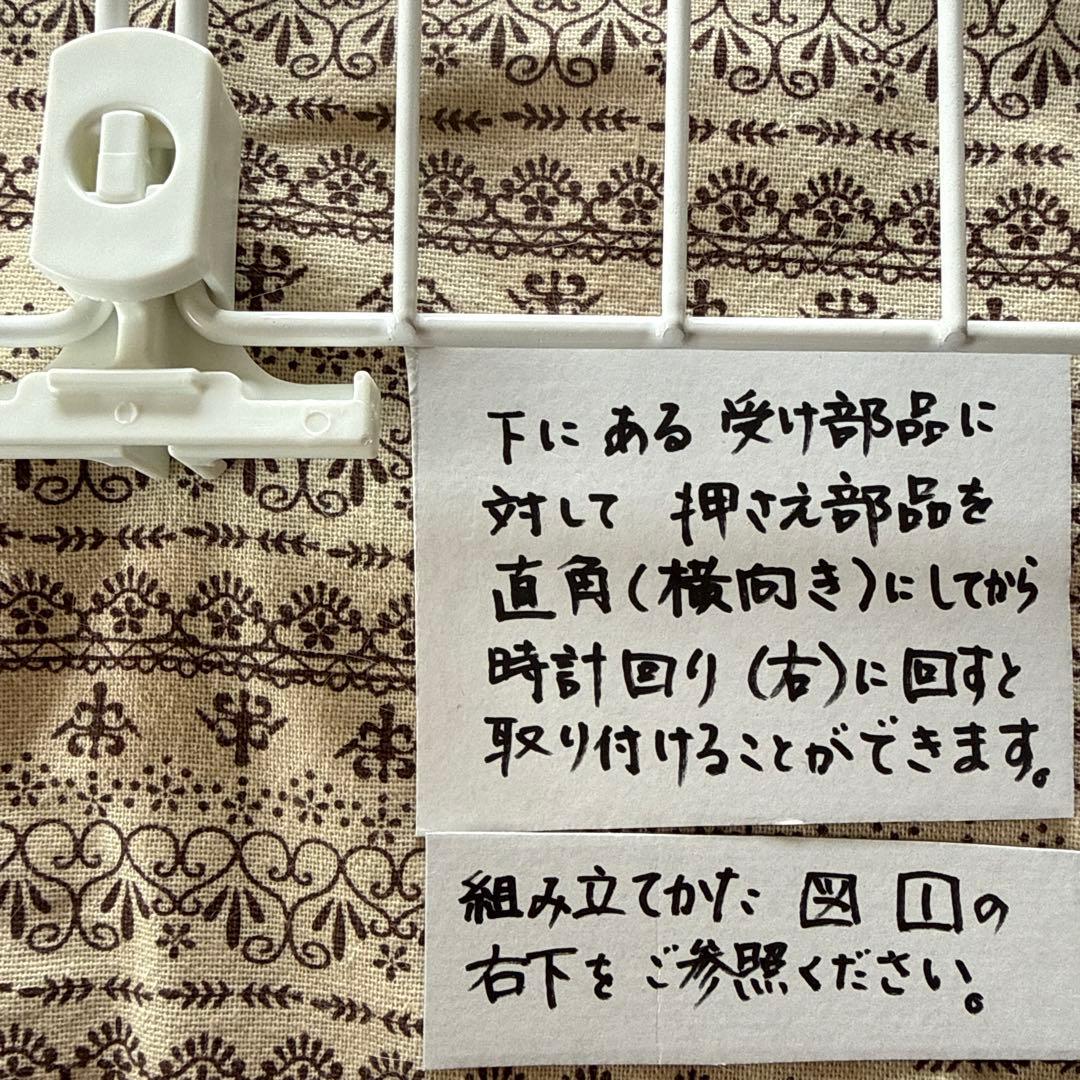 下にある受け部品に
対して 押さえ部品を
直角(横向き)にしてから
時計回り(右)に回すと
取り付けることができます。
組み立てかた 図 1の
右下をご参照ください。